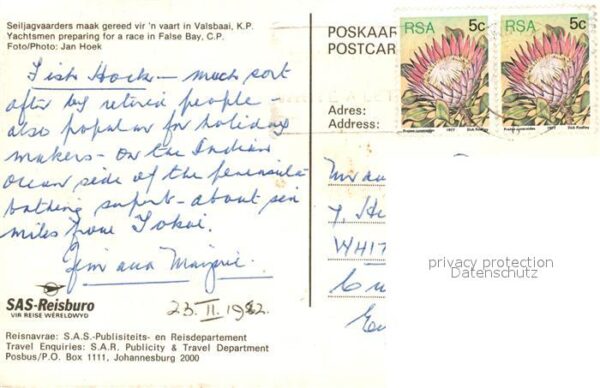 Seiljagvaarders maak gereed vir 'n vaart in Valsbaai, K.P.
Yachtsmen preparing for a race in False Bay, C.P.
Foto/Photo: Jan Hoek
Fish Hoek – much sort
after by retired people –
also popular for holiday
makers – on the Indian
ocean side of the peninsula
bathing superb – about six
miles from Tokai.
Jim and Marjorie.
SAS-Reisburo
VIR REISE WÊRELDWYD
23.II.1982.
Reisnavrae: S.A.S.-Publisiteits- en Reisdepartement
Travel Enquiries: S.A.R. Publicity & Travel Department
Posbus/P.O. Box 1111, Johannesburg 2000
POSKAAR
POSTCAR
Adres:
Address:
RSA 5c
RSA 5c
Protea cynaroides 1977 Dick Findlay
Protea cynaroides 1977 Dick Findlay
WHIT
privacy protection
Datenschutz